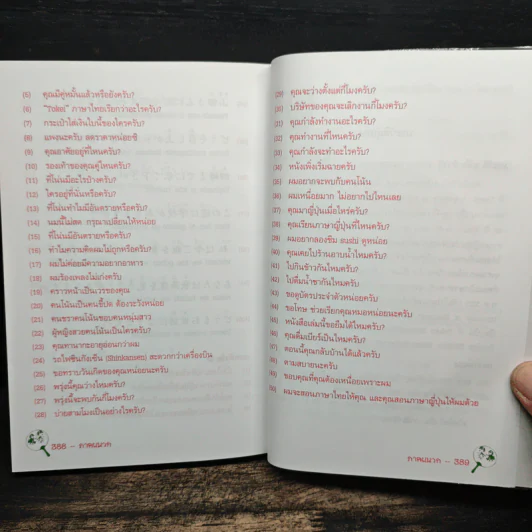 (5) คุณมีคู่หมั้นแล้วหรือยังครับ?
(6) "Tokei" ภาษาไทยเรียกว่าอะไรครับ?
(7) กระเป๋าใส่เงินใบนี้ของใครครับ?
(8) แพงนะครับ ลดราคาหน่อยซิ
(9) คุณอาศัยอยู่ที่ไหนครับ?
(10) รองเท้าของคุณคู่ไหนครับ?
(11) ที่โน่นมีอะไรบ้างครับ?
(12) ใครอยู่ที่นั่นหรือครับ?
(13) ที่โน่นทำไมมีอันตรายหรือครับ?
(14) นมนี้ไม่สด กรุณาเปลี่ยนให้หน่อย
(15) ที่โน่นมีอันตรายหรือครับ?
(16) ทำไมความคิดผมไม่ถูกหรือครับ?
(17) ผมไม่ค่อยมีความอยากอาหาร
(18) ผมร้องเพลงไม่เก่งครับ
(19) คราวหน้าเป็นเวรของคุณ
(20) คนโน้นเป็นคนขี้ปด ต้องระวังหน่อย
(21) คนชราคนโน้นชอบคนหนุ่มสาว
(22) ผู้หญิงสวยคนโน้นเป็นใครครับ?
(23) คุณทานากะอายุอ่อนกว่าผม
(24) รถไฟชินกังเซ็น Shinkansen สะดวกกว่าเครื่องบิน
(25) ขอทราบวันเกิดของคุณหน่อยนะครับ
(26) พรุ่งนี้คุณว่างไหมครับ?
(27) พรุ่งนี้จะพบกันกี่โมงครับ?
(28) บ่ายสามโมงเป็นอย่างไรครับ?
388 – ภาคผนวก
(29) คุณจะว่างตั้งแต่กี่โมงครับ?
(30) บริษัทของคุณจะเลิกงานกี่โมงครับ?
(31) คุณกำลังทำงานอะไรครับ?
(32) คุณทำงานที่ไหนครับ?
(33) คุณกำลังจะทำอะไรครับ?
(34) หนังเพิ่งเริ่มฉายครับ
(35) ผมอยากจะพบกับคนโน้น
(36) ผมเหนื่อยมาก ไม่อยากไปไหนเลย
(37) คุณมาญี่ปุ่นเมื่อไหร่ครับ?
(38) คุณเรียนภาษาญี่ปุ่นที่ไหนครับ?
(39) ผมอยากลองชิม sushi ดูหน่อย
(40) คุณเคยไปร้านอาบน้ำไหมครับ?
(41) ไปกินข้าวกันไหมครับ?
(42) ไปดื่มน้ำชากันไหมครับ?
(43) ขอดูบัตรประจำตัวหน่อยครับ
(44) ขอโทษ ช่วยเรียกคุณหมอหน่อยนะครับ
(45) หนังสือเล่มนี้ขอยืมได้ไหมครับ?
(46) คุณดื่มเบียร์เป็นไหมครับ?
(47) ตอนนี้คุณกลับบ้านได้แล้วครับ
(48) ตามสบายนะครับ
(49) ขอบคุณที่คุณต้องเหนื่อยเพราะผม
(50) ผมจะสอนภาษาไทยให้คุณ และคุณสอนภาษาญี่ปุ่นให้ผมด้วย
ภาคผนวก – 389